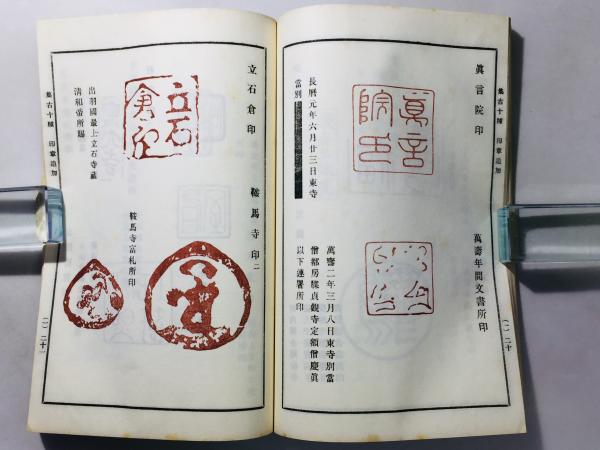 集古十種 印章追加
眞言院印
眞言院印
長曆元年六月廿三日東寺
當別
萬壽年間文書所印
萬壽二年三月八日東寺別當
僧都房牒貞觀寺定額僧慶眞
以下連署所印
(一)二十
立石倉印
立石倉印
出羽國最上立石寺藏
清和帝所賜
鞍馬寺印二
鞍馬寺富札所印
集古十種 印章追加
(一)二十一